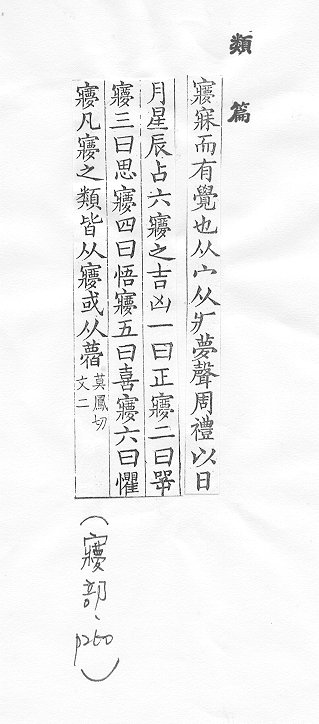 類篇
寱寐而有覺也从宀从爿夢聲周禮以日
月星辰占六㝱之吉凶一曰正㝱二曰噩
㝱三曰思㝱四曰悟㝱五曰喜㝱六曰懼
㝱凡㝱之類皆从㝱或从瞢莫鳳切
文二
(㝱部、p260)